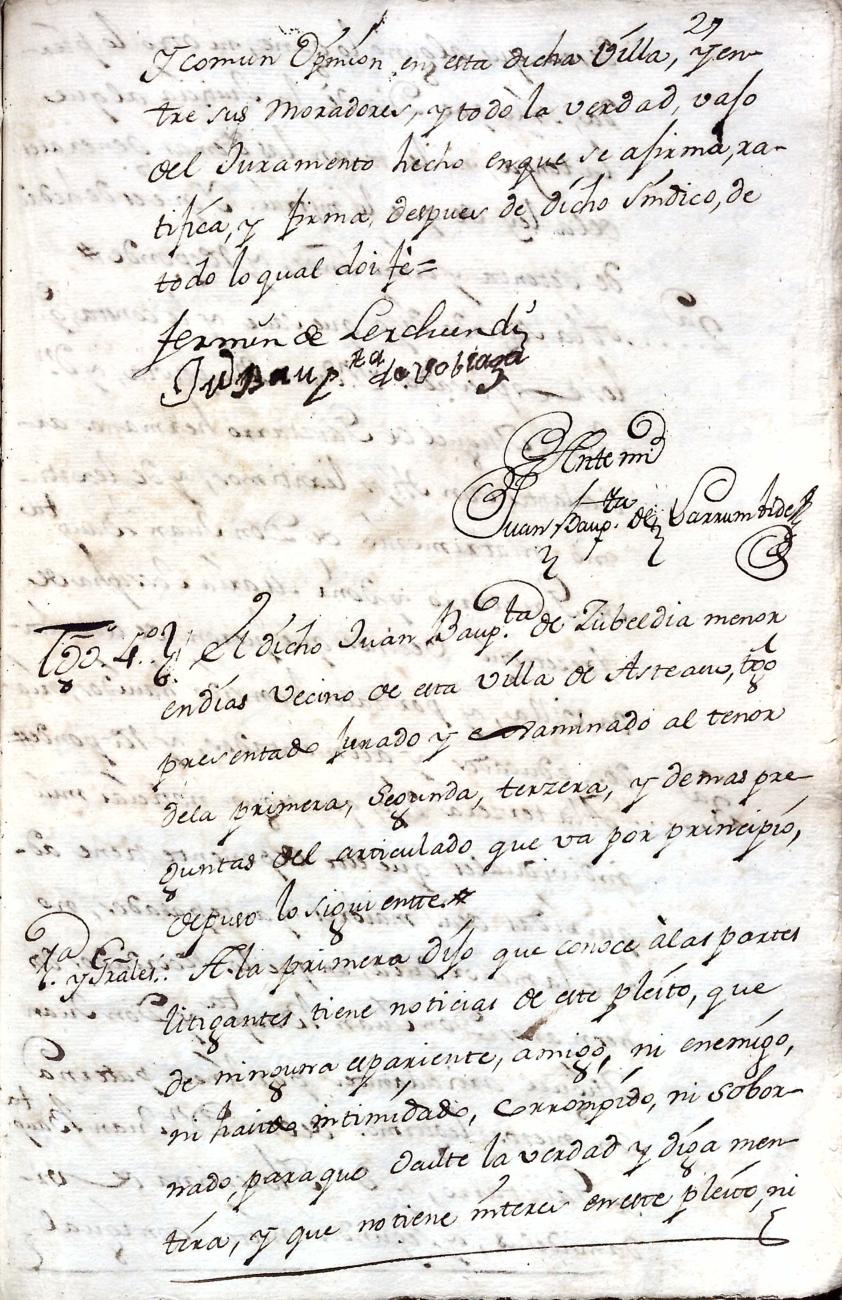 27
y comun Opinion en esta dicha Villa, y en-
tre sus Moradores, y todo la verdad, vajo
del Juramento hecho enque se afirma, ra-
tifica, y firma, despues de dicho Sindico, de
todo lo qual doi fe=
fermin de Lerchundi
Ju Baup.ta de
Ante mi
Juan Baup.ta de Larrumbide
Tgo. 4.º El dicho Juan Baup.ta de Zubeldia menor
endias Vecino de esta Villa de Asteasu, tgo
presentado Jurado y examinado al tenor
dela primera, Segunda, terzera, y demas pre-
guntas del articulado que va por principio,
depuso lo siguientte
1.a y Grales. A la primera dijo que conoce àlas partes
litigantes, tiene noticias de este pleito, que
de ninguna es pariente, amigo, ni enemigo,
ni haido intimidado, Corrompido, ni Sobor-
nado, paraque oculte la verdad y diga men-
tira, y que notiene interes eneste pleito, ni